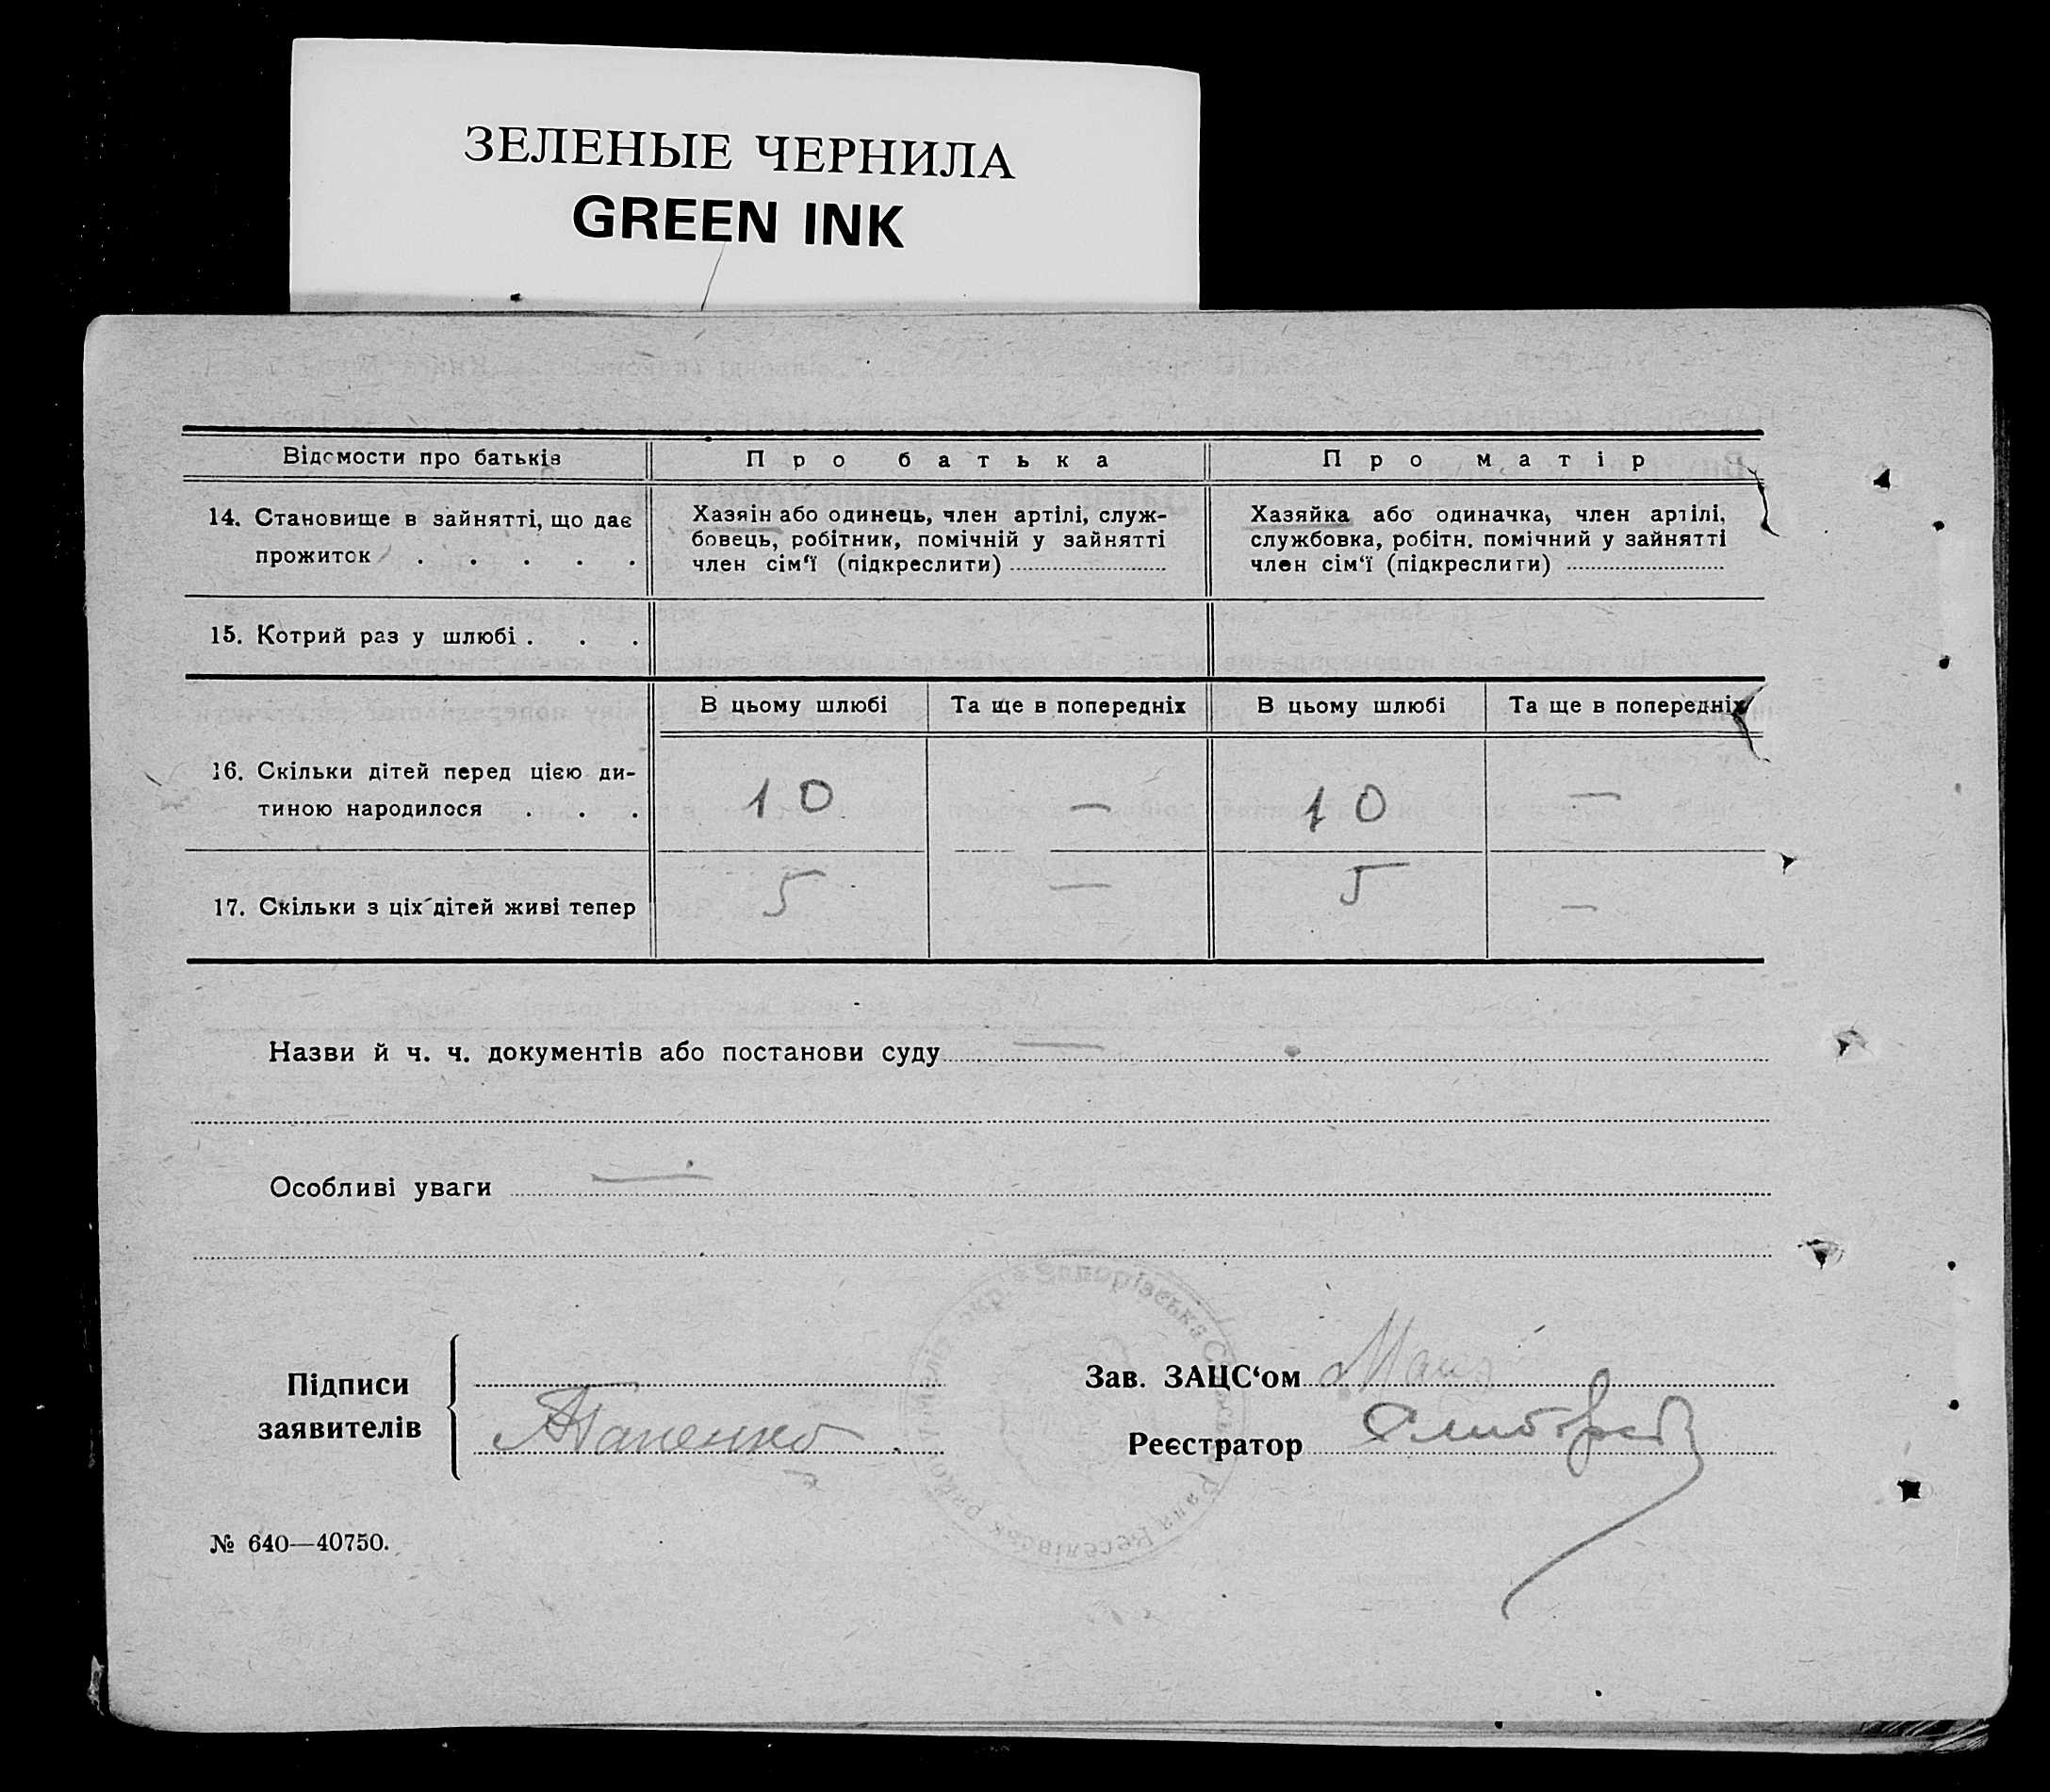 ЗЕЛЕНЫЕ ЧЕРНИЛА
GREEN INK
Відомости про батьків
Про батька
Про матір
14. Становище в зайнятті, що дає
прожиток . . . . .
Хазяін або одинець, член артілі, служ-
бовець, робітник, помічній у зайнятті
член сім‘ї (підкреслити)
Хазяйка або одиначка, член артілі,
службовка, робітн. помічний у зайнятті
член сім‘ї (підкреслити)
15. Котрий раз у шлюбі . . .
В цьому шлюбі
Та ще в попередніх
В цьому шлюбі
Та ще в попередніх
16. Скільки дітей перед цією ди-
тиною народилося . . .
10
—
10
—
17. Скільки з ціх дітей живі тепер
5
—
5
—
Назви й ч. ч. документів або постанови суду —
Особливі уваги —
Підписи
заявителів
Зав. ЗАЦС‘ом
Реєстратор
№ 640—40750.